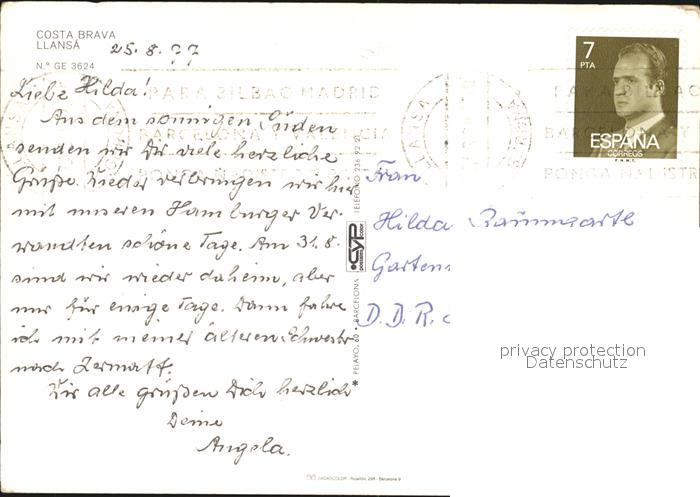 COSTA BRAVA
LLANSÁ
N.º GE 3624
25.8.77
Liebe Hilda!
Aus dem sonnigen Süden
senden wir Dir viele herzliche
Grüße. Wieder verbringen wir hier
mit unseren Hamburger Ver-
wandten schöne Tage. Am 31.8.
sind wir wieder daheim, aber
nur für einige Tage. Dann fahre
ich mit meiner älteren Schwester
nach Zermatt.
Wir alle grüßen Dich herzlich
Deine
Angela.
PARA BILBAO MADRID
BARCELONA VALENCIA
PONGA
LLANSA
7
PTA
ESPAÑA
CORREOS
PELAYO, 60 • BARCELONA
CYP
TELEFONO 236 92
Frau
Hilda Baumgartl
Gartens
D.D.R.
privacy protection
Datenschutz